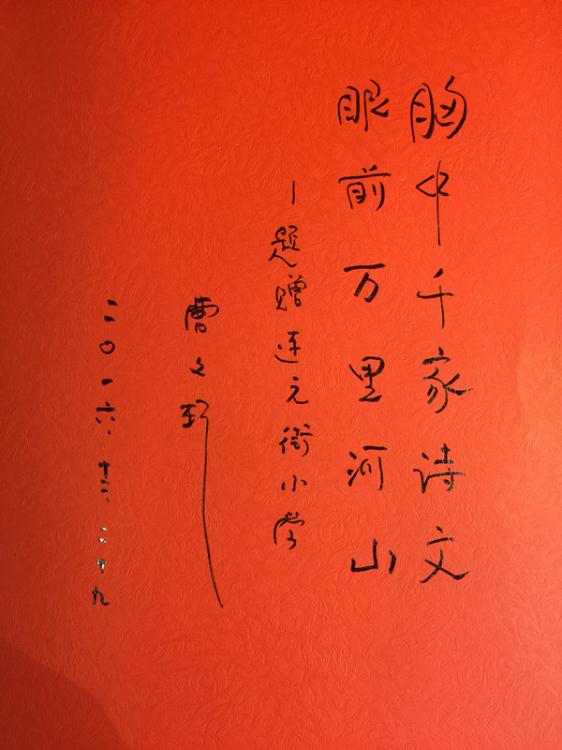 胸中千家诗文
眼前万里河山
—题赠连元街小学
曹文轩
二〇一六.十二.二十九